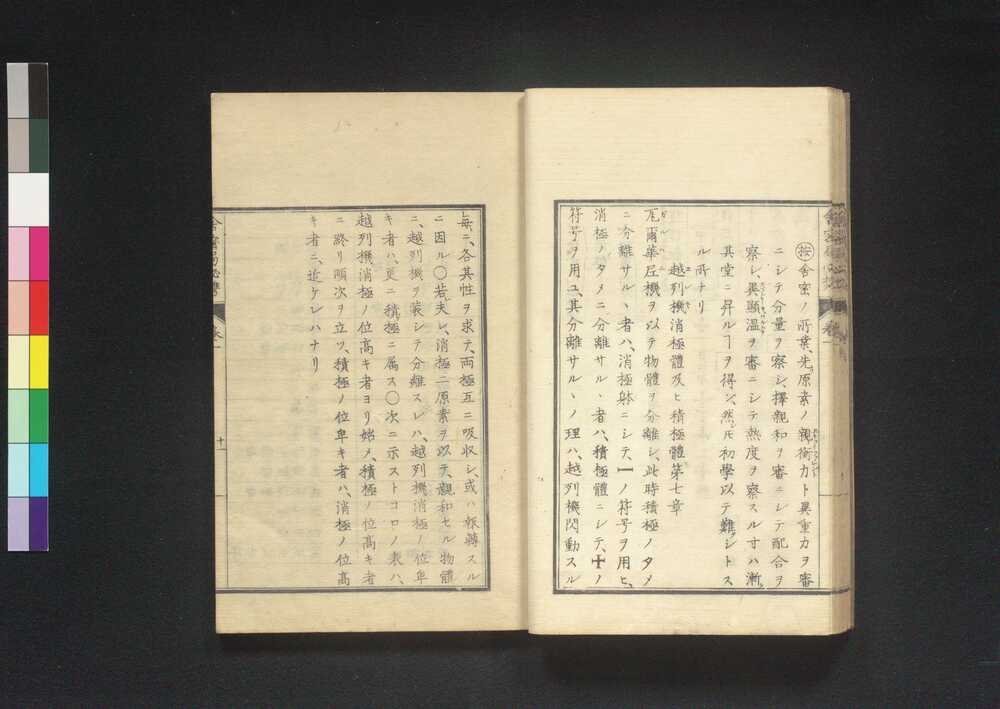 按舍密ノ所業、先原素ノ親衛力ト異重力ヲ審
ニシテ分量ヲ察シ、擇親和ヲ審ニシテ配合ヲ
察シ、異顯温ヲ審ニシテ熱度ヲ察スル寸ハ、漸
其堂ニ昇ルヿヲ得ン、然𪜈初學以テ難シトス
ル所ナリ
越列機消極體及ヒ積極體第七章
瓦爾華尼機ヲ以テ物體ヲ分離シ、此時積極ノタメ
ニ分離サルヽ者ハ、消極躰ニシテ、一ノ符号ヲ用ヒ、
消極ノタメニ分離サルヽ者ハ、積極體ニシテ、十ノ
符号ヲ用ユ、其分離サルヽノ理ハ、越列機閃動スル
毎ニ、各其性ヲ求テ、両極互ニ吸収シ、或ハ転スル
ニ因ル〇若夫レ、消極ニ原素ヲ以テ、親和セル物體
ニ、越列機ヲ装シテ分離スレハ、越列機消極ノ位卑
キ者ハ、更ニ積極ニ属ス〇次ニ示ストコロノ表ハ、
越列機消極ノ位高キ者ヨリ始メ、積極ノ位高キ者
ニ終リ順次ヲ立ツ、積極ノ位卑キ者ハ、消極ノ位高
キ者ニ、近ケレハナリ
卷一
十一